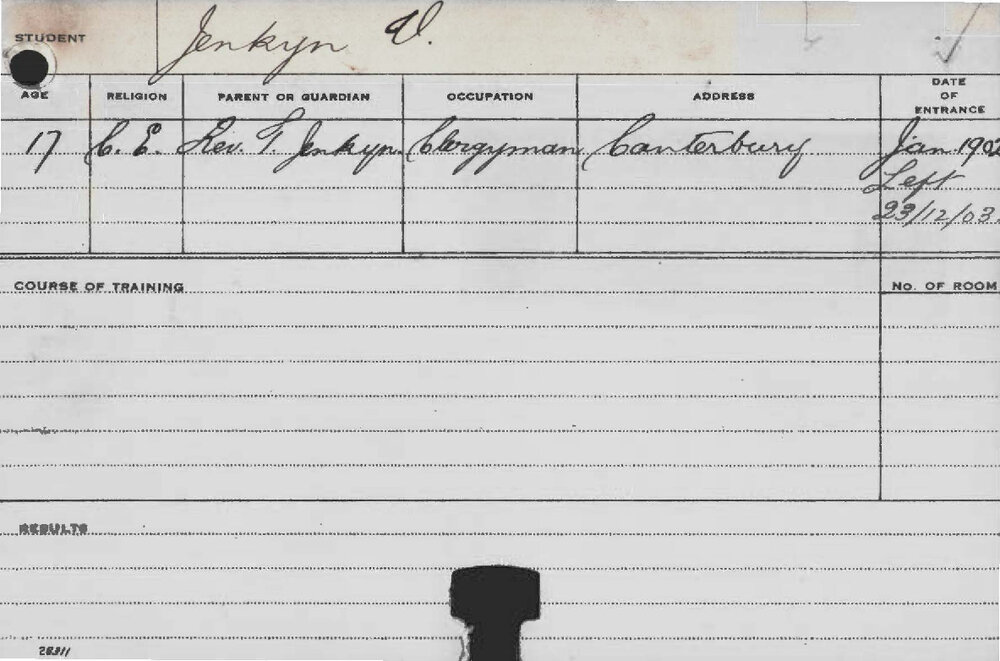 STUDENT Jenkyn V.
AGE RELIGION PARENT OR GUARDIAN OCCUPATION ADDRESS DATE OF ENTRANCE
17 C.E. Rev. T. Jenkyn. Clergyman Canterbury Jan. 1902
Left
23/12/03.
COURSE OF TRAINING No. OF ROOM
RESULTS